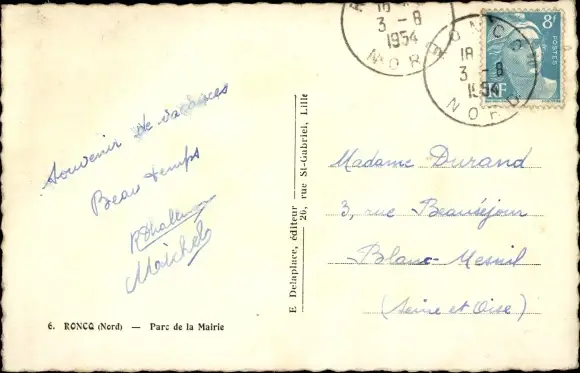 Souvenir de vacances
Beau temps
Michel
6. RONCQ (Nord) — Parc de la Mairie
E Delaplace, éditeur —
20, rue St-Gabriel, Lille
18
3 - 8
1954
NORD
RONCQ
18
3 - 8
1954
NORD
8F
POSTES
RF
Madame Durand
3, rue Beauséjour
Blanc-Mesnil
(Seine et Oise)